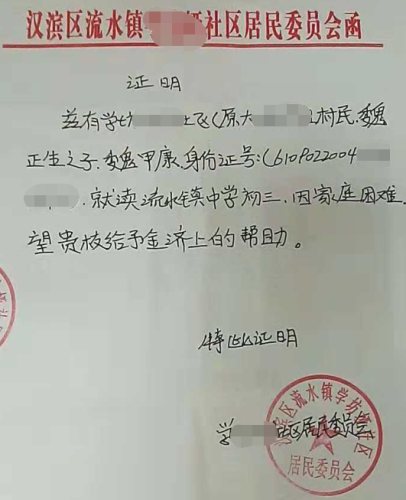 汉滨区流水镇学 社区居民委员会函
证明
兹有学坊 社区(原大 村民,魏
正生之子,魏甲康,身份证号:(6109022004
就读流水镇中学初三,因家庭困难,
望贵校给予经济上的帮助。
特此证明
学 社区居民委员会
汉滨区流水镇学坊 社区
居民委员会